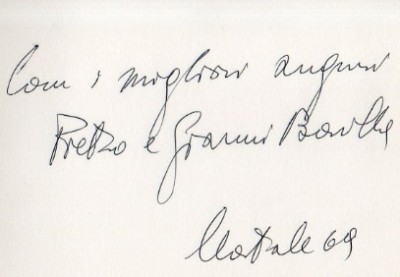 Con i migliori auguri
Pietro e Gianni Barilla
Natale 69